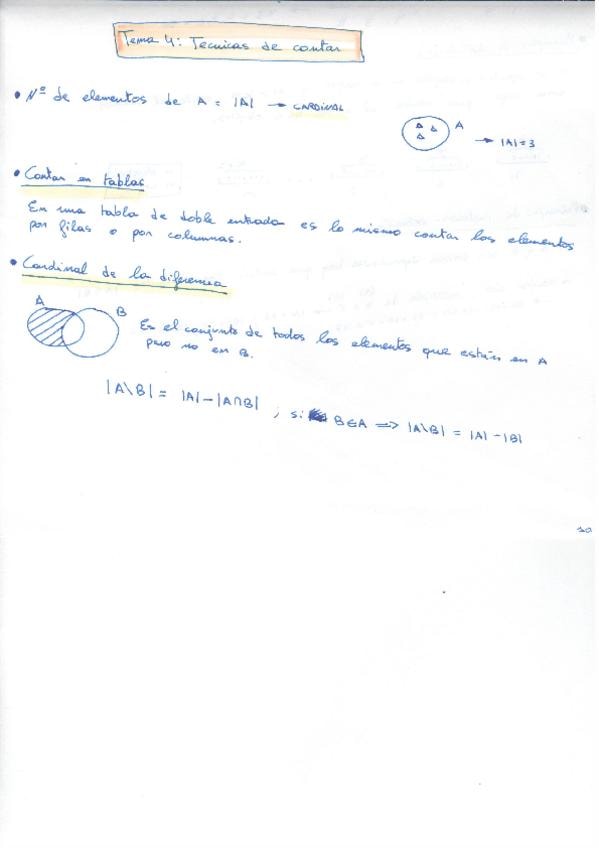 Tema 4: Tecnicas de contar
• Nº de elementos de A = |A| → CARDINAL
A
→ |A|=3
• Contar en tablas
En una tabla de doble entrada es lo mismo contar los elementos
por filas o por columnas.
• Cardinal de la diferencia
A
B
Es el conjunto de todos los elementos que están en A
pero no en B.
|A\B| = |A| - |A∩B| , si B⊆A ⟹ |A\B| = |A| - |B|